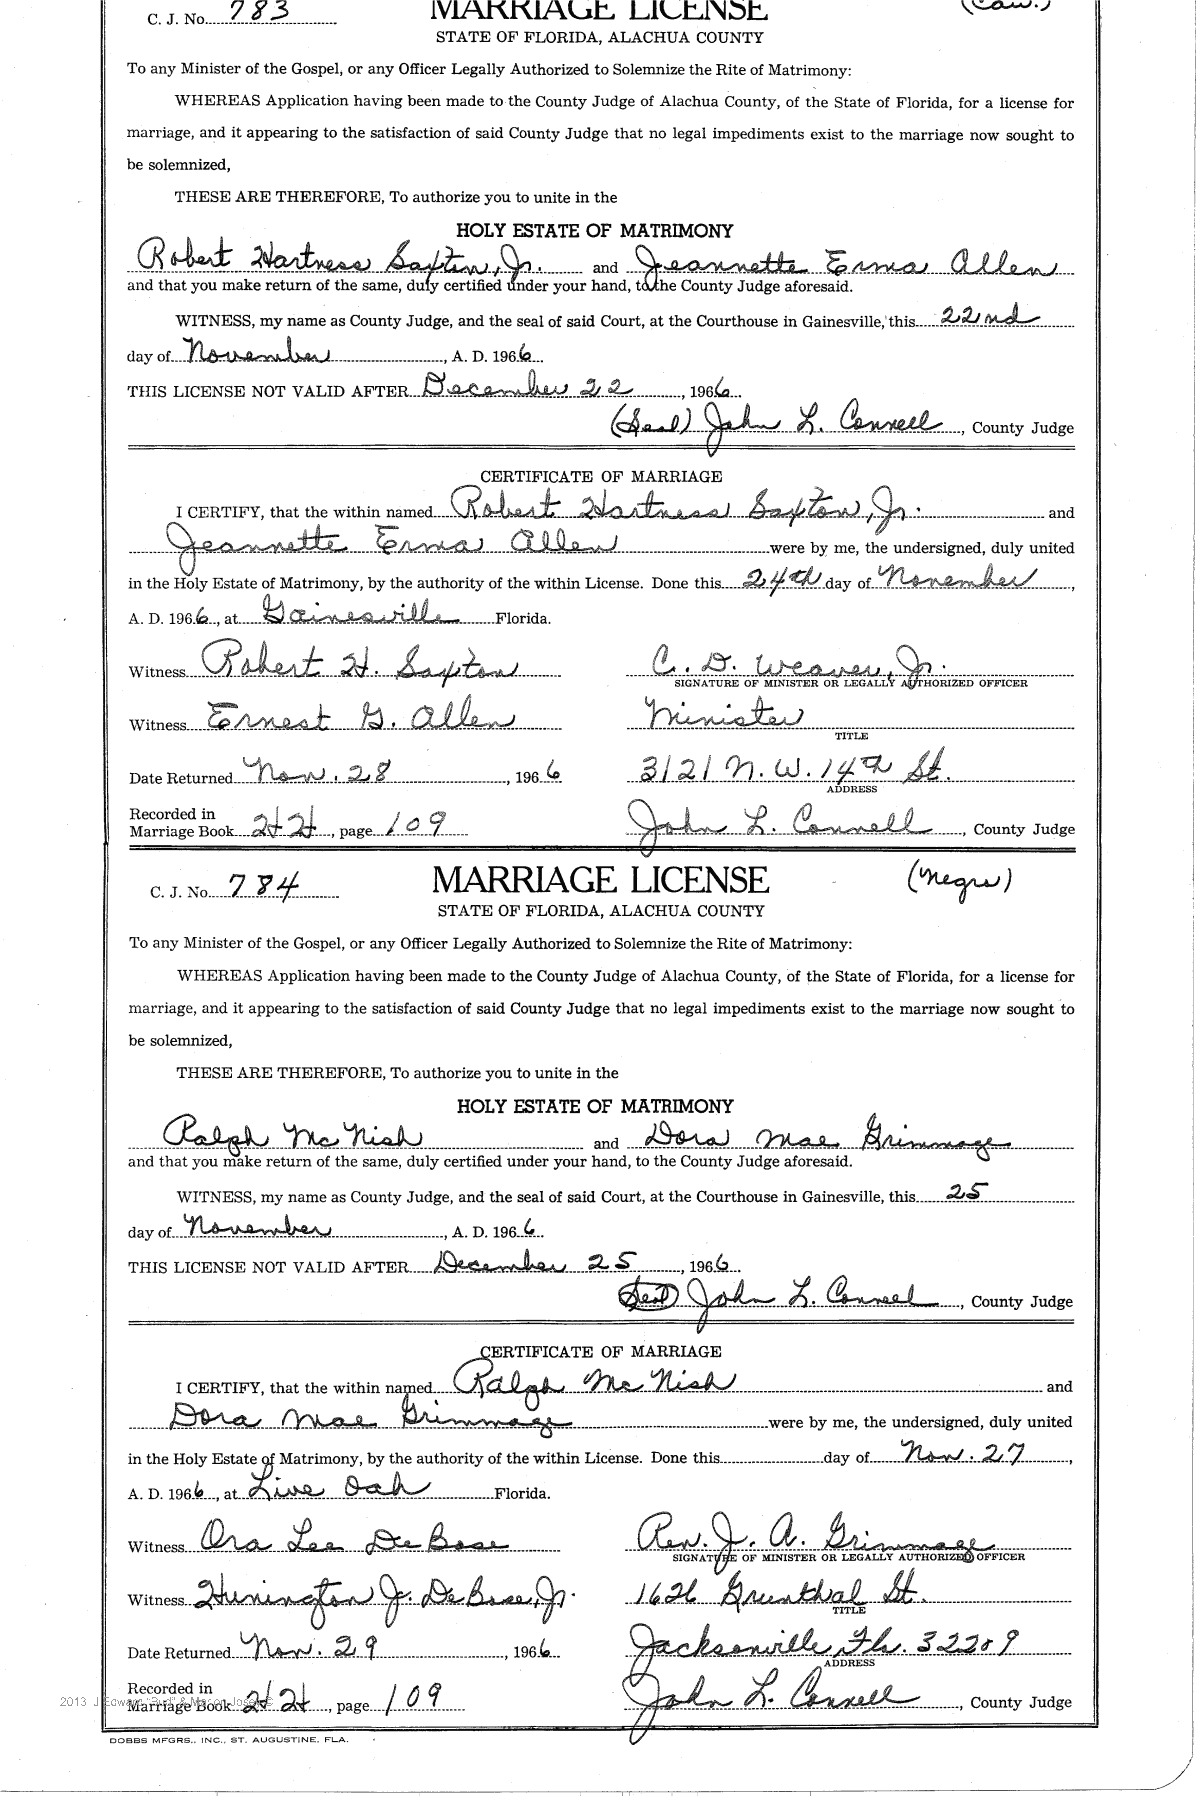 C. J. No. 783 MARRIAGE LICENSE (Cau.)
STATE OF FLORIDA, ALACHUA COUNTY
To any Minister of the Gospel, or any Officer Legally Authorized to Solemnize the Rite of Matrimony:
WHEREAS Application having been made to the County Judge of Alachua County, of the State of Florida, for a license for
marriage, and it appearing to the satisfaction of said County Judge that no legal impediments exist to the marriage now sought to
be solemnized,
THESE ARE THEREFORE, To authorize you to unite in the
HOLY ESTATE OF MATRIMONY
Robert Hartness Saxton, Jr. and Jeannette Erma Allen
and that you make return of the same, duly certified under your hand, to the County Judge aforesaid.
WITNESS, my name as County Judge, and the seal of said Court, at the Courthouse in Gainesville, this 22nd
day of November, A. D. 1966
THIS LICENSE NOT VALID AFTER December 22, 1966
(Seal) John L. Connell, County Judge
CERTIFICATE OF MARRIAGE
I CERTIFY, that the within named Robert Hartness Saxton, Jr. and
Jeannette Erma Allen were by me, the undersigned, duly united
in the Holy Estate of Matrimony, by the authority of the within License. Done this 24th day of November,
A. D. 1966, at Gainesville Florida.
Witness Robert H. Saxton C. D. Weaver, Jr.
SIGNATURE OF MINISTER OR LEGALLY AUTHORIZED OFFICER
Witness Ernest G. Allen Minister
TITLE
Date Returned Nov. 28, 1966 3121 N. W. 14th St.
ADDRESS
Recorded in
Marriage Book 22, page 109 John L. Connell, County Judge
C. J. No. 784 MARRIAGE LICENSE (Negro)
STATE OF FLORIDA, ALACHUA COUNTY
To any Minister of the Gospel, or any Officer Legally Authorized to Solemnize the Rite of Matrimony:
WHEREAS Application having been made to the County Judge of Alachua County, of the State of Florida, for a license for
marriage, and it appearing to the satisfaction of said County Judge that no legal impediments exist to the marriage now sought to
be solemnized,
THESE ARE THEREFORE, To authorize you to unite in the
HOLY ESTATE OF MATRIMONY
Ralph McNish and Dora Mae Grimmage
and that you make return of the same, duly certified under your hand, to the County Judge aforesaid.
WITNESS, my name as County Judge, and the seal of said Court, at the Courthouse in Gainesville, this 25
day of November, A. D. 1966
THIS LICENSE NOT VALID AFTER December 25, 1966
(Seal) John L. Connell, County Judge
CERTIFICATE OF MARRIAGE
I CERTIFY, that the within named Ralph McNish and
Dora Mae Grimmage were by me, the undersigned, duly united
in the Holy Estate of Matrimony, by the authority of the within License. Done this day of Nov. 27,
A. D. 1966, at Live Oak Florida.
Witness Ora Lee DeBose Rev. J. A. Grimmage
SIGNATURE OF MINISTER OR LEGALLY AUTHORIZED OFFICER
Witness J. DeBose, Jr. 1626 Grunthal St.
TITLE
Date Returned Nov. 29, 1966 Jacksonville, Fla. 32209
ADDRESS
Recorded in
Marriage Book, page 109 John L. Connell, County Judge
DOBBS MFGRS., INC., ST. AUGUSTINE, FLA.